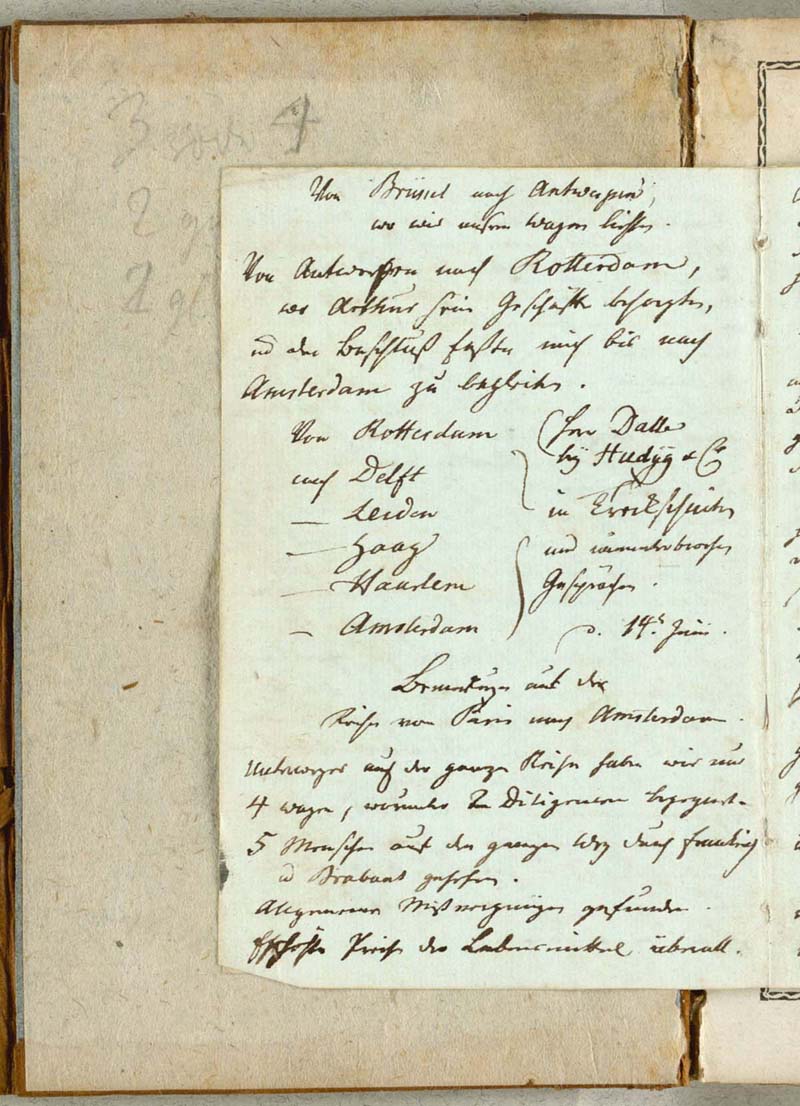 3 4
2
2
Von Brüssel nach Antwerpen,
wo wir unsern Wagen ließen.
Von Antwerpen nach Rotterdam,
wo Arthur sein Geschäfte besorgte,
und den Beschluß faßte mich bis nach
Amsterdam zu begleiten.
Von Rotterdam
nach Delft
— Leiden
— Haag
— Haarlem
— Amsterdam
(Herr Dalle
by Hudyg & Co
in Treckschuiten
und ununterbrochen
Gesprächen.
d. 14t Juni.
Bemerkungen auf der
Reise von Paris nach Amsterdam.
Unterweges auf der ganzen Reise haben wir nur
4 wagen, worunter 2 Diligencen begegnet.
5 Menschen auf den ganzen Weg durch Frankreich
u Brabant gesehen.
Allgemeines Mißvergnügen gefunden.
Preise der Lebensmittel überall.